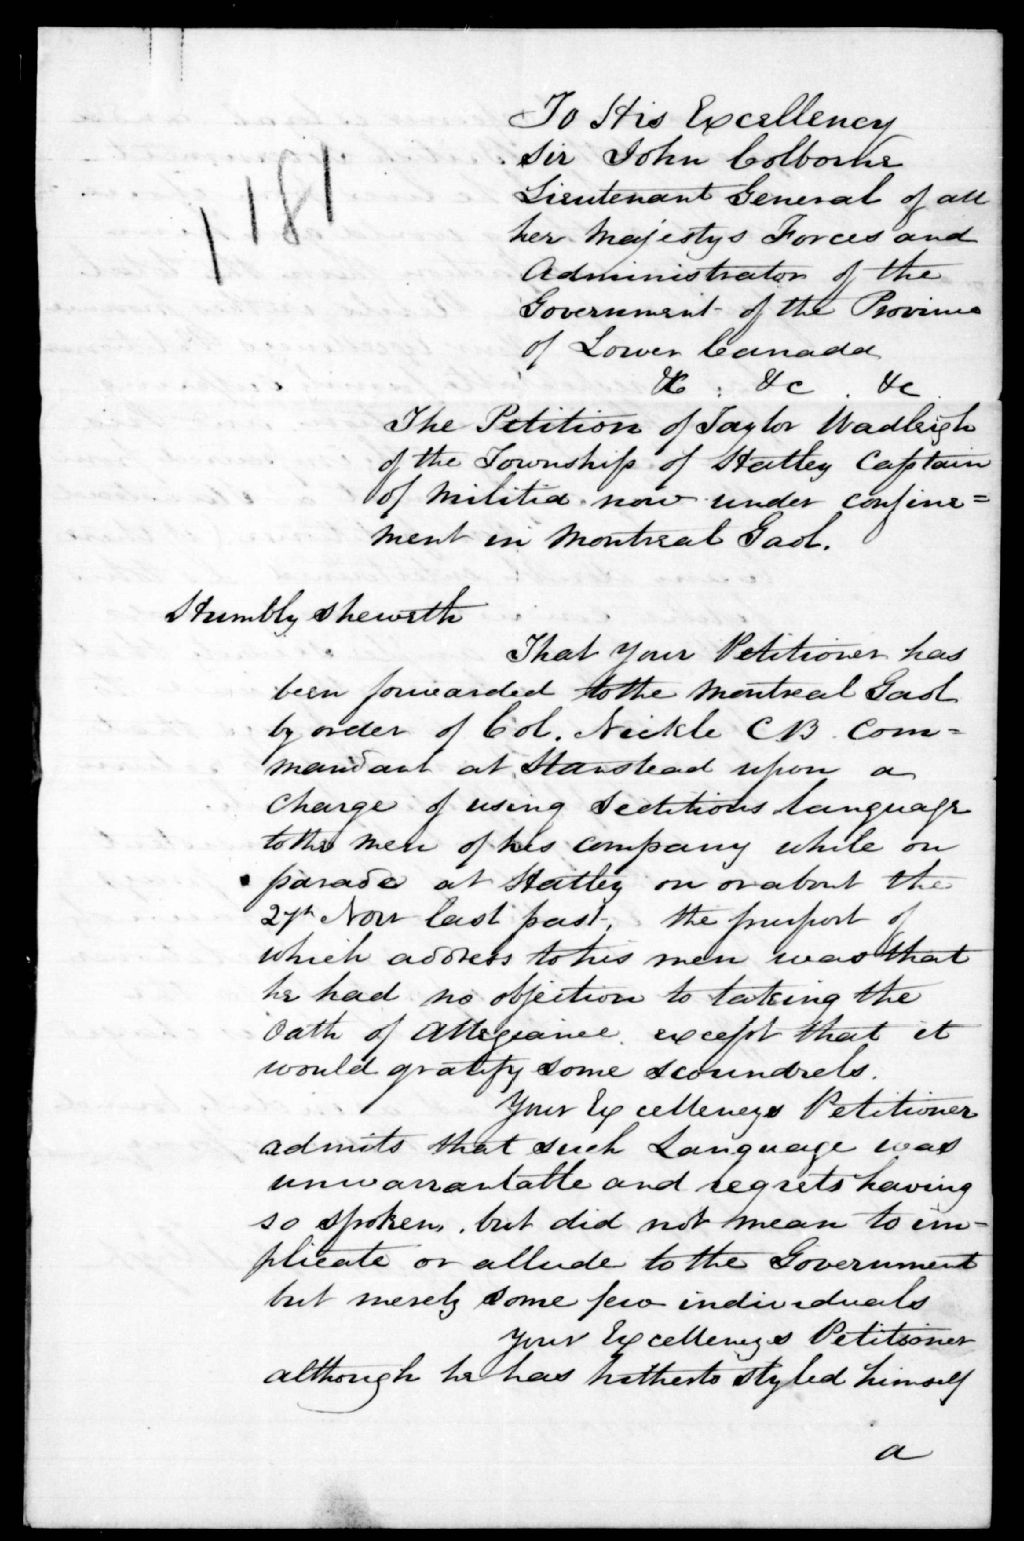 To His Excellency
Sir John Colborne
Lieutenant General of all
her Majestys Forces and
Administrator of the
Government of the Province
of Lower Canada
&c &c &c
1181
The Petition of Taylor Wadleigh
of the Township of Hatley Captain
of Militia now under confine=
ment in Montreal Gaol.
Humbly sheweth
That your Petitioner has
been forwarded to the Montreal Gaol
by order of Col. Nickle CB Com=
mandant at Stanstead upon a
charge of using Seditious language
to the men of his company while on
parade at Hatley on or about the
27th Novr last past, the purport of
which address to his men was that
he had no objection to taking the
Oath of Allegiance except that it
would gratify some scoundrels.
Your Excellencys Petitioner
admits that such Language was
unwarrantable and regrets having
so spoken, but did not mean to im=
plicate or allude to the Government
but merely some few individuals
Your Excellencys Petitioner
although he has hitherto styled himself
a